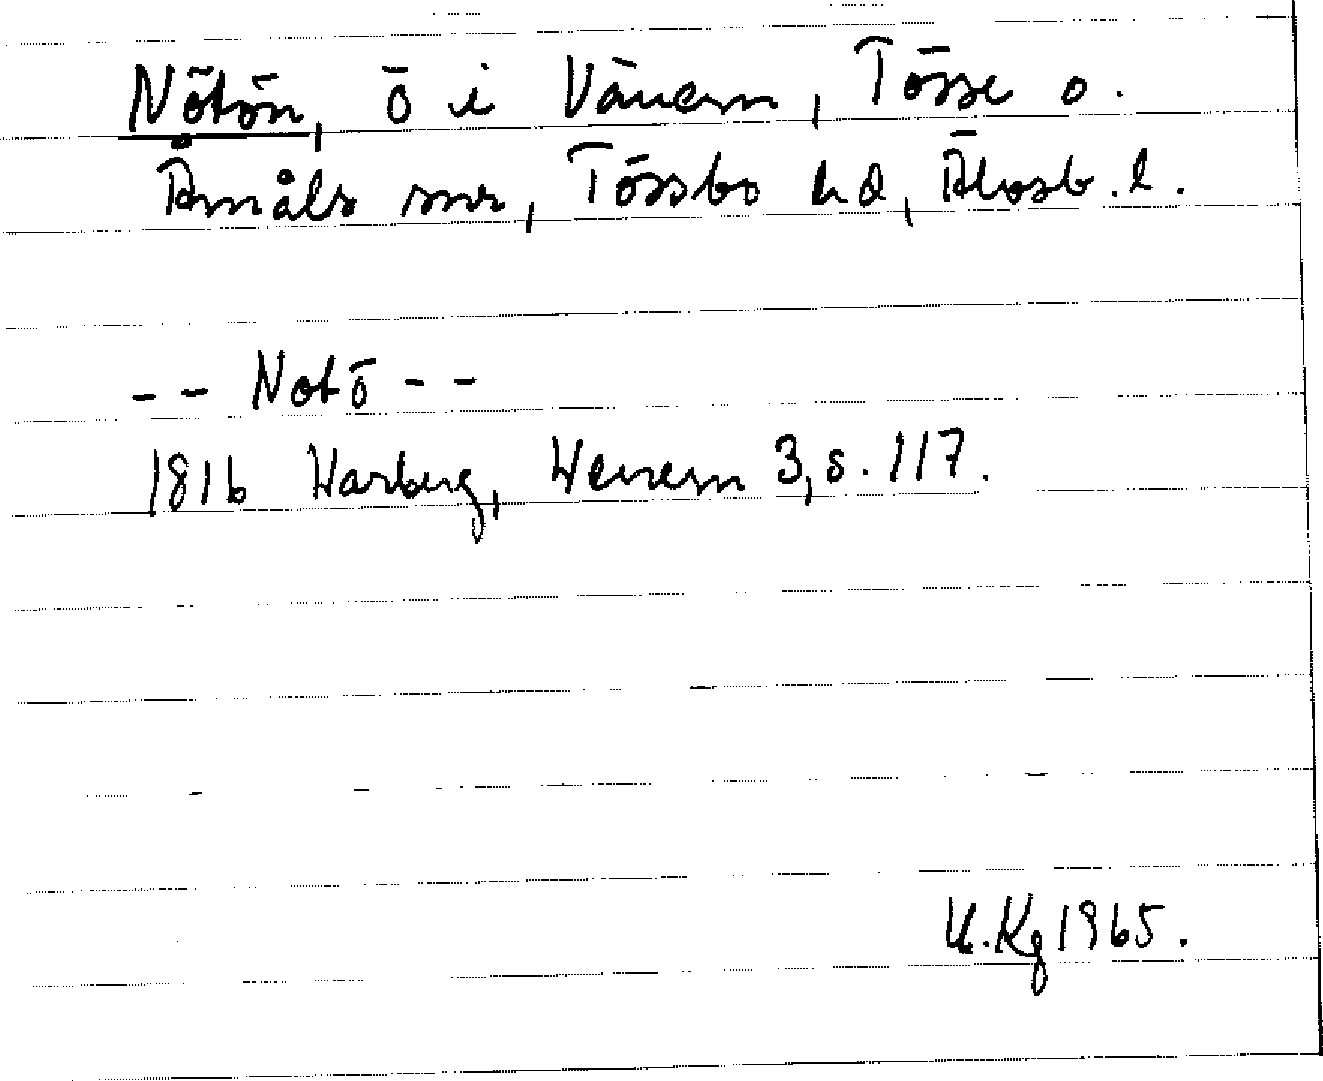 Nötön, ö i Vänern, Tösse o.
Åmåls snr, Tössbo hd, Älvsb. l.
-- Notö --
1816 Warberg, Wenern 3, s. 117.
K. Kg 1965.